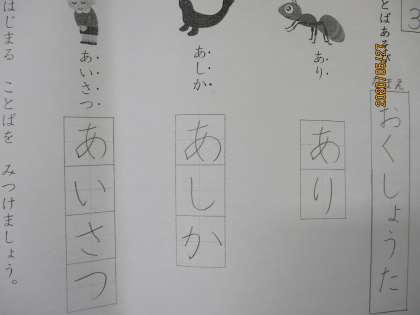 3
ことばあそび
おくしょうた
あり
あり
あしか
あしか
あいさつ
あいさつ
はじまる ことばを みつけましょう。